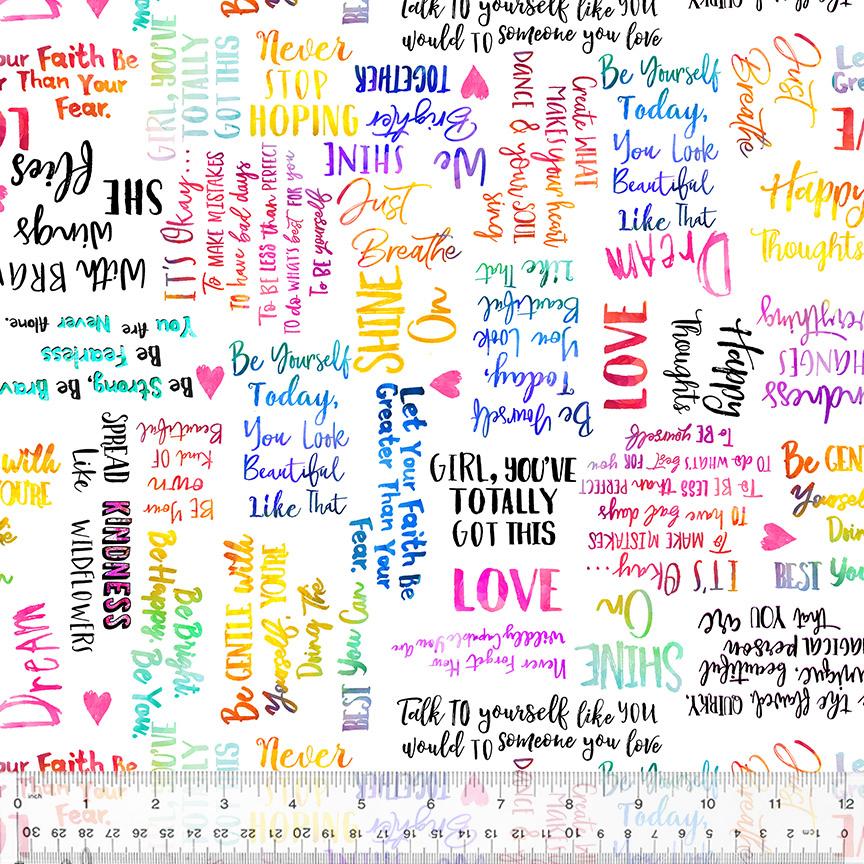 Talk TO yourself like YOU
would TO someone you love
our Faith Be
r Than Your
Fear.
GIRL, YOU'VE
TOTALLY
GOT THIS
Never
STOP
HOPING
We
SHINE
Brighter
TOGETHER
DANCE & your SOUL
sing
Create WHAT
MAKES your heart
Be Yourself
Today,
You Look
Beautiful
Like That
Just
Breathe
Happy
Thoughts
SHE
flies
With BRA
wings
IT'S Okay...
To MAKE MISTAKES
TO have bad days
To BE LESS than PERFECT
TO do WHAT'S best FOR you
To BE yourself
Just
Breathe
DREAM
SHINE
On
Be Yourself
Today,
You Look
Beautiful
Like That
LOVE
Happy
Thoughts
ndness
HANGES
everything
Be Strong, Be Brav
Be Fearless
You Are Never Alone.
Be Yourself
Today,
You Look
Beautiful
Like That
Let Your Faith Be
Greater Than Your
Fear.
SPREAD KINDNESS
Like WILDFLOWERS
BE Your
own
Kind OF
Beautiful
GIRL, YOU'VE
TOTALLY
GOT THIS
IT'S Okay...
To MAKE MISTAKES
TO have bad days
To BE LESS than PERFECT
TO do WHAT'S best FOR you
To BE yourself
with
YOU'RE
Be GEN
Yoursel
Doin
BEST You
Be Bright.
Be Happy. Be You.
Be GENTLE with
Yourself, YOU'RE
Doing The
BEST You Can
LOVE
Never Forget How
Wildly Capable You Are
SHINE
On
DREAM
Be the flawed, QUIRKY,
unique, beautiful,
MAGICAL person
That YOU are
Talk TO yourself like YOU
would TO someone you love
our Faith Be
Than Your
Fear.
Never
STOP
HOPING
Brighter
TOGETHER
Be Yourself
Today,
Just
Breathe
0 inch 1 2 3 4 5 6 7 8 9 10 11 12
30 29 28 27 26 25 24 23 22 21 20 19 18 17 16 15 14 13 12 11 10 9 8 7 6 5 4 3 2 1cm 0